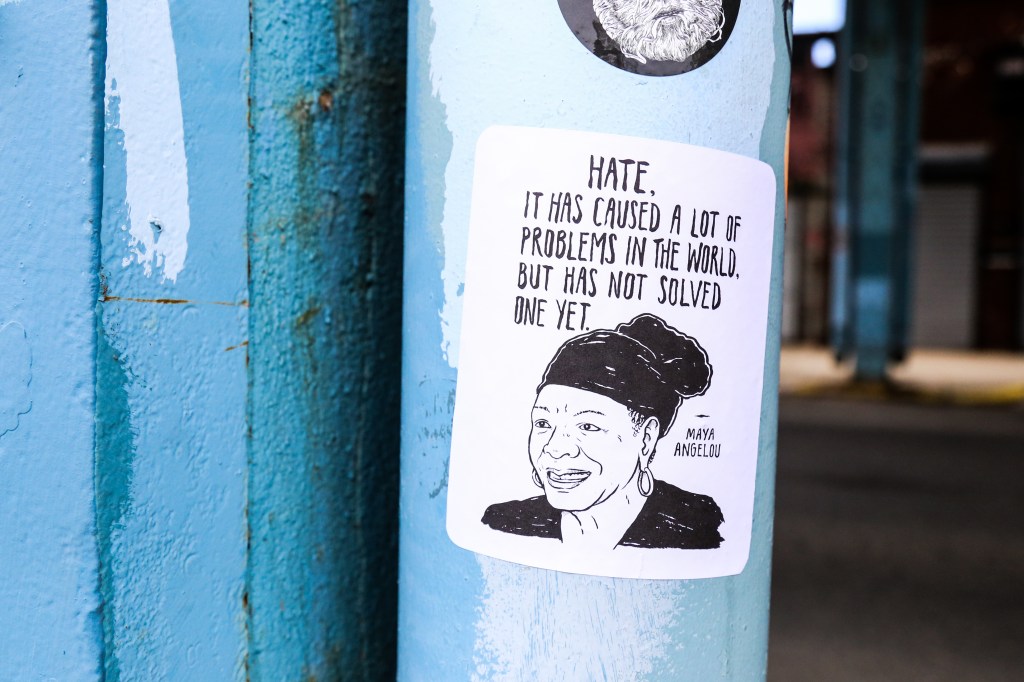 HATE,
IT HAS CAUSED A LOT OF
PROBLEMS IN THE WORLD,
BUT HAS NOT SOLVED
ONE YET.
MAYA
ANGELOU